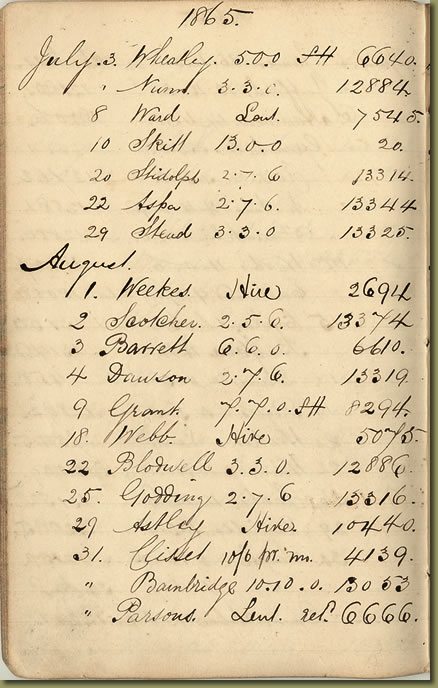 1865.
July. 3. Wheatley. 5.0.0 SH 6640.
" Nunn. 3.3.0. 12884
8 Ward Lent. 7545.
10 Skitt 13.0.0 20.
20 Stidolph 2.7.6 13314.
22 Aspa 2.7.6. 13344
29 Stead 3.3.0 13325.
August.
1. Weekes. Hire 2694
2 Scotcher. 2.5.6. 13374
3 Barrett 6.6.0. 6610.
4 Dawson 2.7.6. 13319.
9 Grant. 7.7.0. SH 8294.
18. Webb. Hire 5075.
22 Blodwell 3.3.0. 12886.
25. Godding 2.7.6 13316.
29 Astley Hire. 10440.
31. Clisset 10/6 pr. mn. 4139.
" Bainbridge 10.10.0. 13053
" Parsons. Lent. ret. 6666.